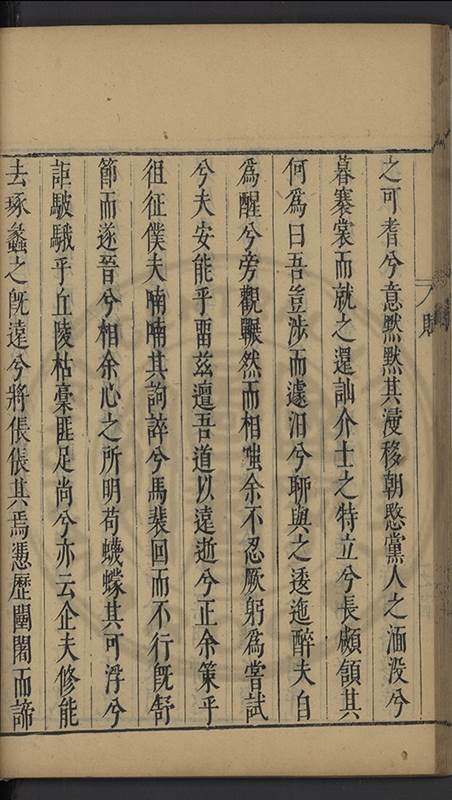 之可耆兮意黙黙其漫移朝愍黨人之湎沒兮
暮褰裳而就之還訕介士之特立兮長顑頷其
何爲曰吾豈涉而遽汨兮聊與之逶迤醉夫自
爲醒兮旁觀囅然而相嗤余不忍厥躬爲嘗試
兮夫安能乎畱兹邅吾道以遠逝兮正余策乎
徂征僕夫喃喃其詢誶兮馬裴回而不行旣舒
節而遂晉兮相余心之所明苟蠛蠓其可浮兮
詎駊騀乎丘陵枯槀匪足尚兮亦云企夫修能
去琢蠡之旣遠兮將倀倀其焉慿歷闉闍而諦